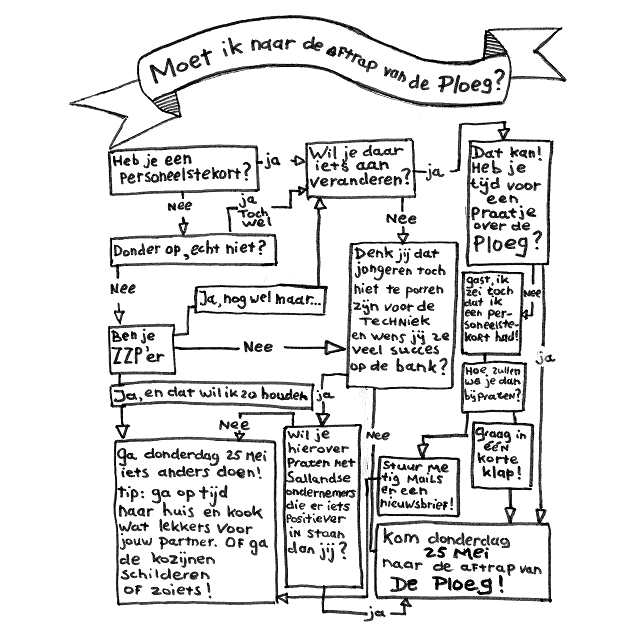 Moet ik naar de aftrap van de Ploeg?
Heb je een
personeelstekort?
ja
Wil je daar
iets aan
veranderen?
ja
Dat kan!
Heb je
tijd voor
een
praatje
over de
Ploeg?
Nee
ja
Toch
wel
Nee
Donder op, echt niet?
Nee
Ja, nog wel maar...
Denk jij dat
jongeren toch
niet te porren
zijn voor de
TECHNIEK
en wens jij ze
veel succes
op de bank?
gast, ik
zei toch
dat ik
een per-
soneelste-
kort had!
Nee
ja
Ben je
ZZP'er
Nee
Hoe zullen
we je dan
bijpraten?
Ja, en dat wil ik zo houden
ja
Nee
Nee
Ga donderdag 25 Mei
iets anders doen!
tip: ga op tijd
naar huis en kook
wat lekkers voor
jouw partner. OF ga
de kozijnen
schilderen
OF zoiets!
Wil je
hierover
praten met
Sallandse
ondernemers
die er iets
positiever
in staan
dan jij?
Stuur me
tig mails
en een
nieuwsbrief!
graag in
één
korte
klap!
Kom donderdag
25 Mei
naar de aftrap van
De Ploeg!
ja